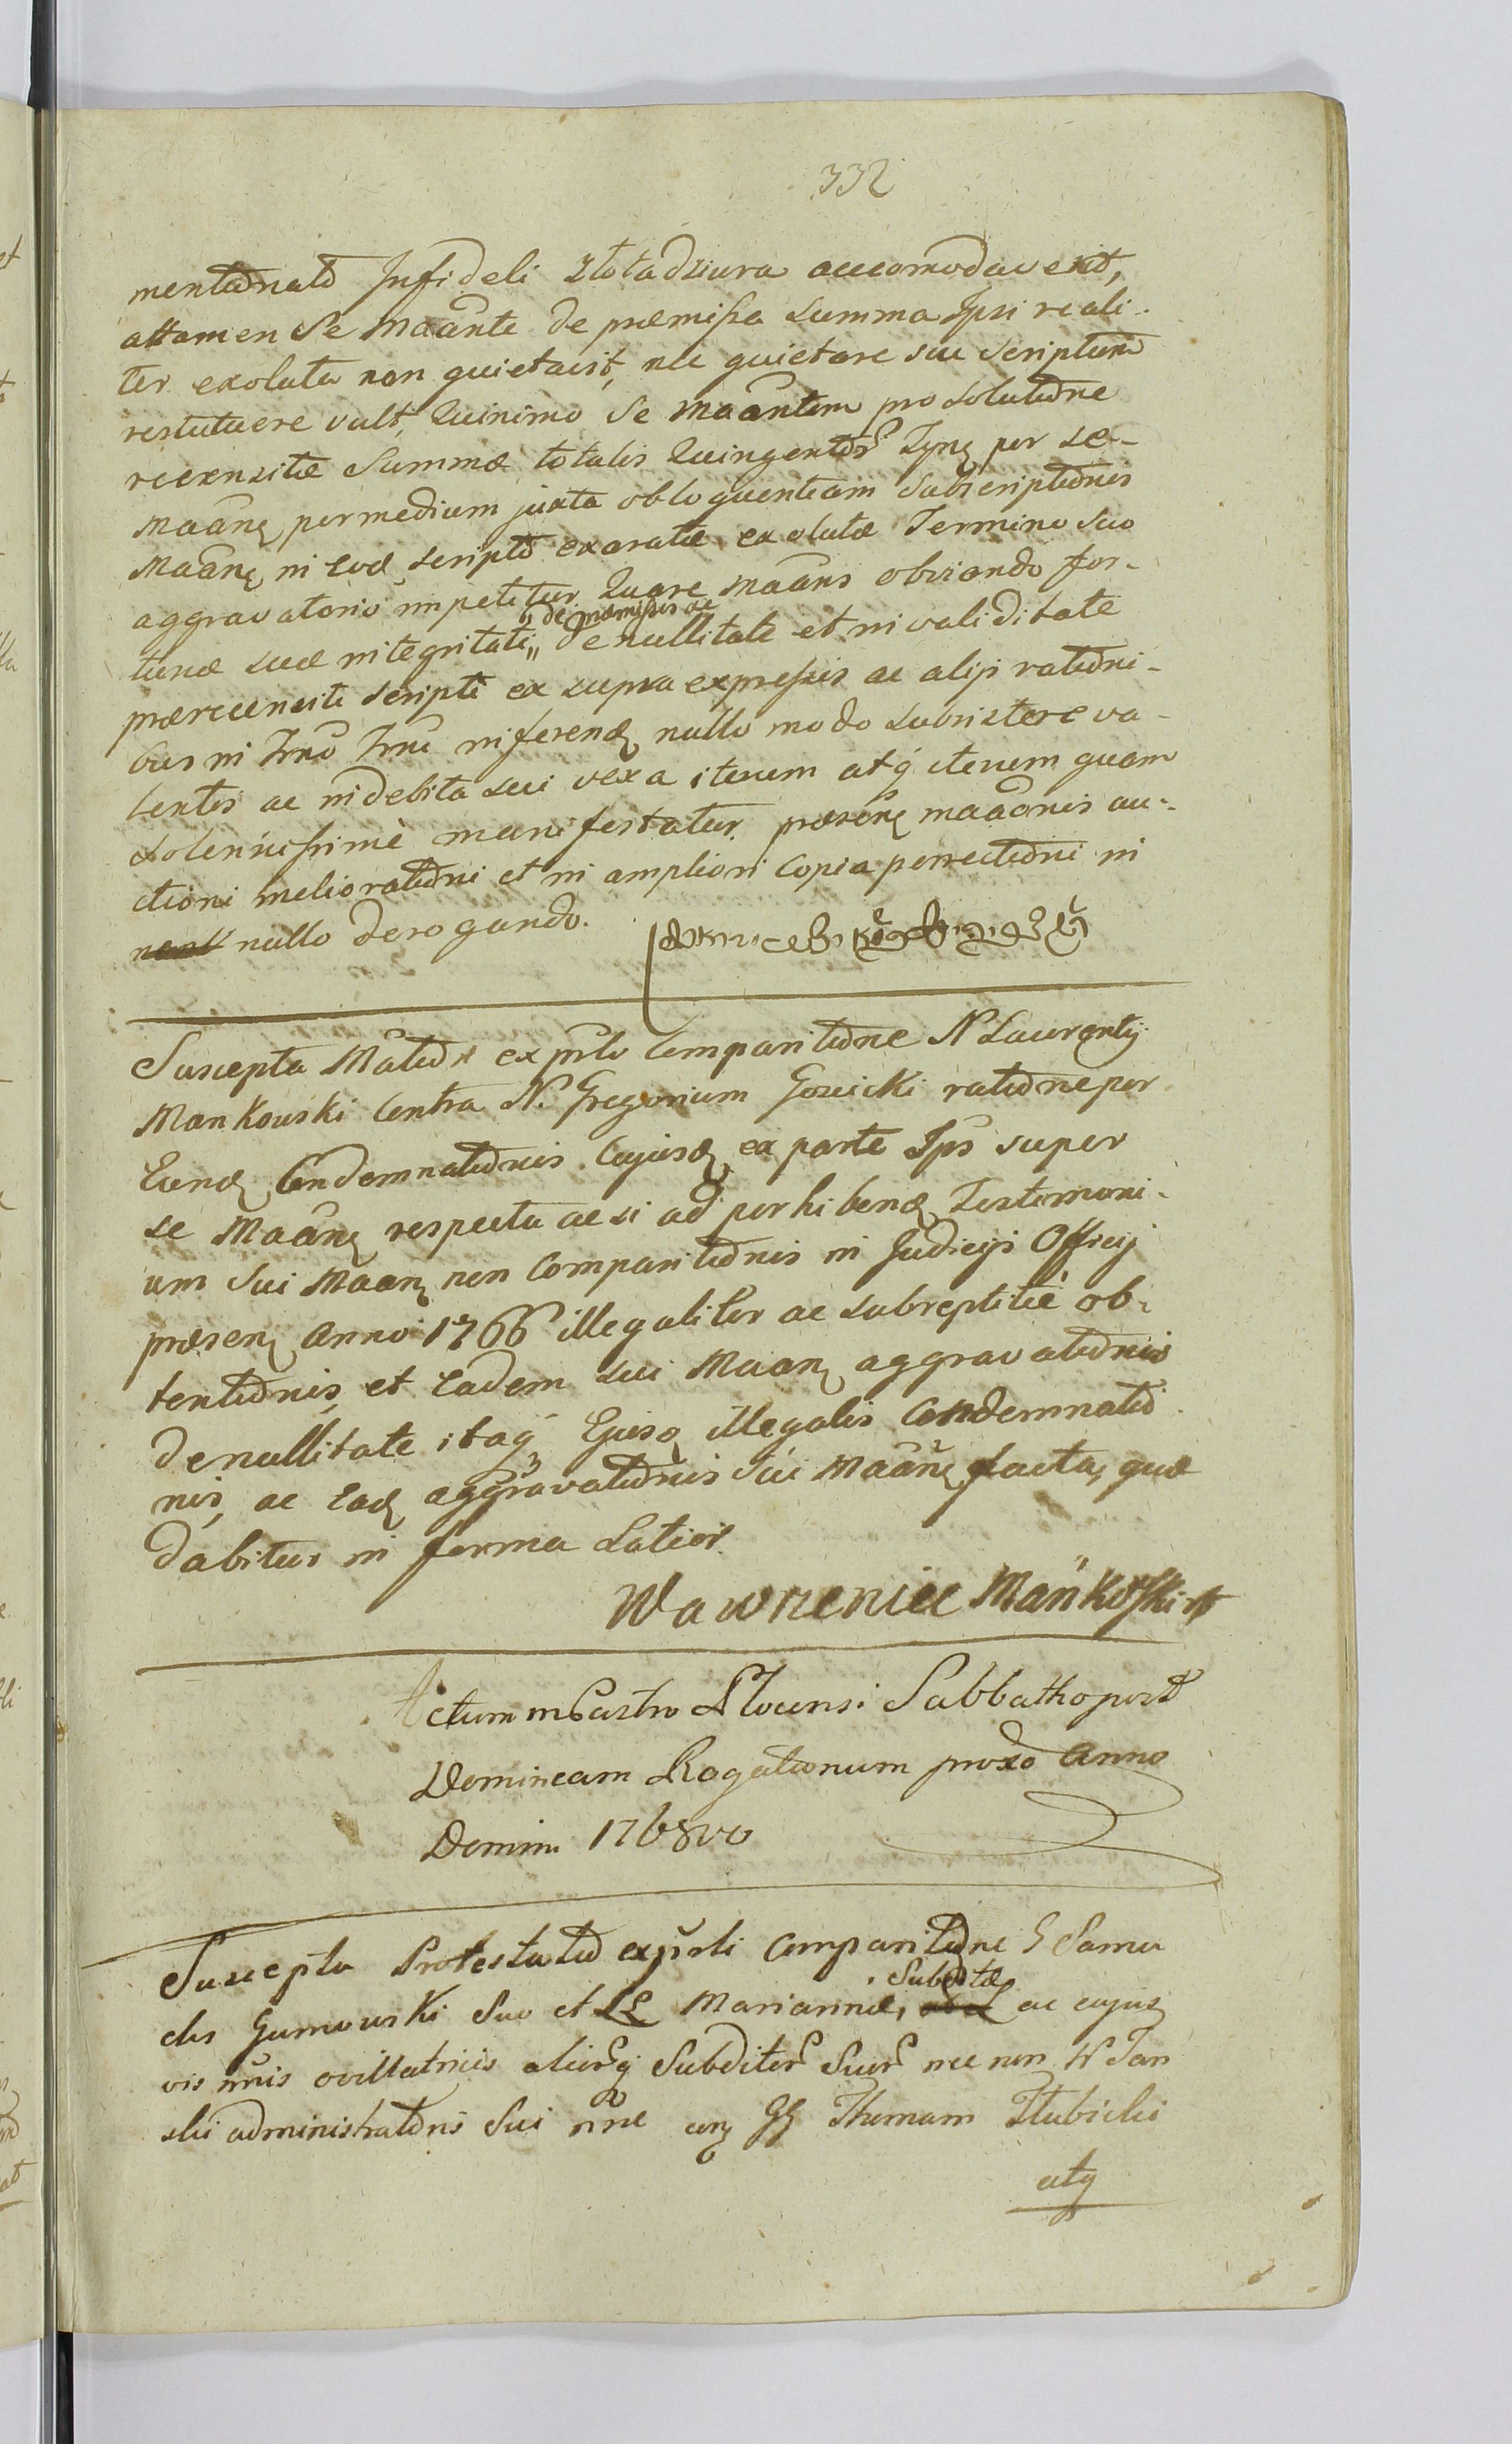 332
mentionato Infideli Złotadziura accomodaverit,
attamen Se Maante de præmissa summa Ipsi reali-
ter exoluta non quietavit, nec quietare seu Scriptum
restutuere vult, Quinimo Se Maantem pro Solutione
recensitæ Summæ totalis Quingentor Tynf per se
Maanę per medium juxta obloquentiam Subscriptionis
Maanę in Eod. Scripto exaratæ exolutæ Termino Suo
aggravatorio impetitur Quare Maans obviando for-
tunæ suæ integritati „ de præmissis ac de nullitate et invaliditate
prærecensiti Scripti ex supra expressis ac alijs rationi-
bus in Trno Tme inferend nullo modo Subsistere va-
lentis ac indebita Sui vexa iterum atq iterum quam
Solennissimè manifestatur præsenę maaonis au-
ctioni meliorationi et in ampliori Copia porrectioni in
nullo derogando.
Suscepta Matio ex prlo Comparitione N Laurentij
Mankowski Contra N. Gregorium Gosicki ratione per
Eund Condemnationis Cujusd ex parte Ips super
se Maanę respectu ac si ad perhibend Testimoni-
um Sui Maanę non Comparitionis in Judicijs Officij
præsenę Anno 1766 illegaliter ac subreptitiè ob-
tentionis, et Eadem Sui Maanę aggravationis
de nullitate itaq Ejusd illegalis Condemnatio
nis, ac Ead aggravationis Sui Maanę facta, quæ
dabitur in forma Latiori
Wawrzeniec Mańkoski
Actum in Castro Plocensi Sabbatho post
Dominicam Rogationum proxo Anno
Domini 1768vo
Suscepta Protestatio ex prsli Comparitione G Samu
elis Gumowski Suo et LL Mariannæ, Subditæ ac cujus
vis ovillatricis aliorq Subditor Suor nec non N Jan
ski administratoris Sui nne con GG Thomam Słubicki
atq